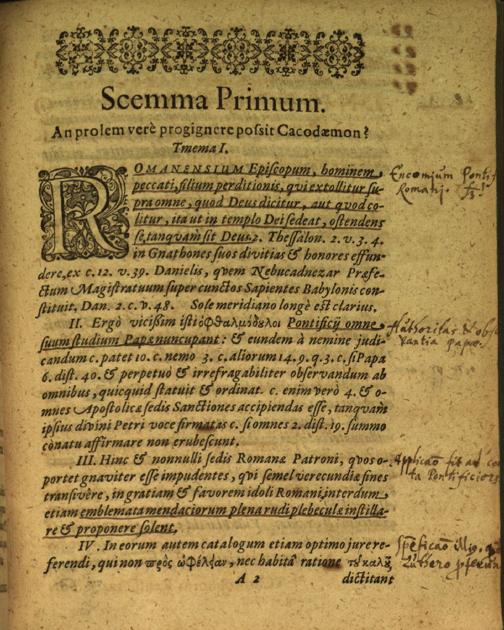 Scemma Primum.
An prolem verè progignere possit Cacodæmon?
Tmema I.
ROMANENSIUM Episcopum, hominem
peccati, filium perditionis, qui extollitur su-
pra omne, quod Deus dicitur, aut quod co-
litur, ita ut in templo Dei sedeat, ostendens
se, tanquam sit Deus. 2. Thessalon. 2. v. 3. 4.
in Gnathones suos divitias & honores effun-
dere, ex c. 12. v. 39. Danielis, quem Nebucadnezar Præfe-
ctum Magistratuum super cunctos Sapientes Babylonis con-
stituit. Dan. 2. c. v. 48. Sole meridiano longè est clarius.
II. Ergò vicissim isti ὀφθαλμόδουλοι Pontificij omne
suum studium Papæ nuncupant: & eundem à nemine judi-
candum c. patet 10. c. nemo 3. c. aliorum 14. 9. q. 3. c. si Papa
6. dist. 40. & perpetuò & irrefragabiliter observandum ab
omnibus, quicquid statuit & ordinat. c. enim verò 4. & o-
mnes Apostolicæ sedis Sanctiones accipiendas esse, tanquam
ipsius divini Petri voce firmatas c. si omnes 2. dist. 19. summo
conatu affirmare non erubescunt.
III. Hinc & nonnulli sedis Romanæ Patroni, quos o-
portet gnaviter esse impudentes, qui semel verecundiæ fines
transivêre, in gratiam & favorem idoli Romani, interdum
etiam emblemata mendaciorum plena rudi plebeculæ instilla-
re & proponere solent.
IV. In eorum autem catalogum etiam optimo jure re-
ferendi, qui non πρὸς ὠφέλειαν, nec habitâ ratione τῦ καλῦ
A 2 dictitant
Encomium Pontif
Romani.
Authoritas & obser
vantia papæ.